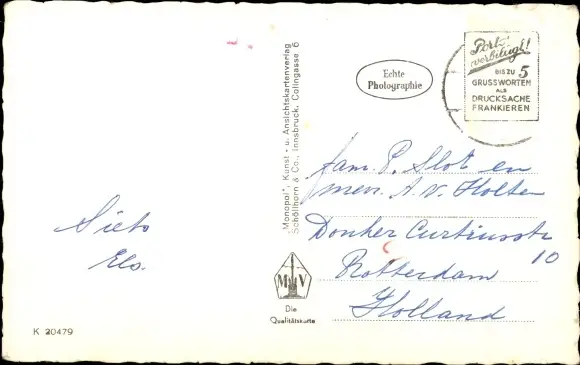 Sieto
Els.
K 20479
Monopol", Kunst - u. Ansichtskartenverlag
Schöllhorn & Co., Innsbruck, Colingasse 6
M V
Die
Qualitätskarte
Echte
Photographie
Porto
verbilligt!
BIS ZU 5
GRUSSWORTEN
ALS
DRUCKSACHE
FRANKIEREN
fam. P. Slot en
mevr. A. v. Holten
Donker Curtiusstr
10
Rotterdam
Holland